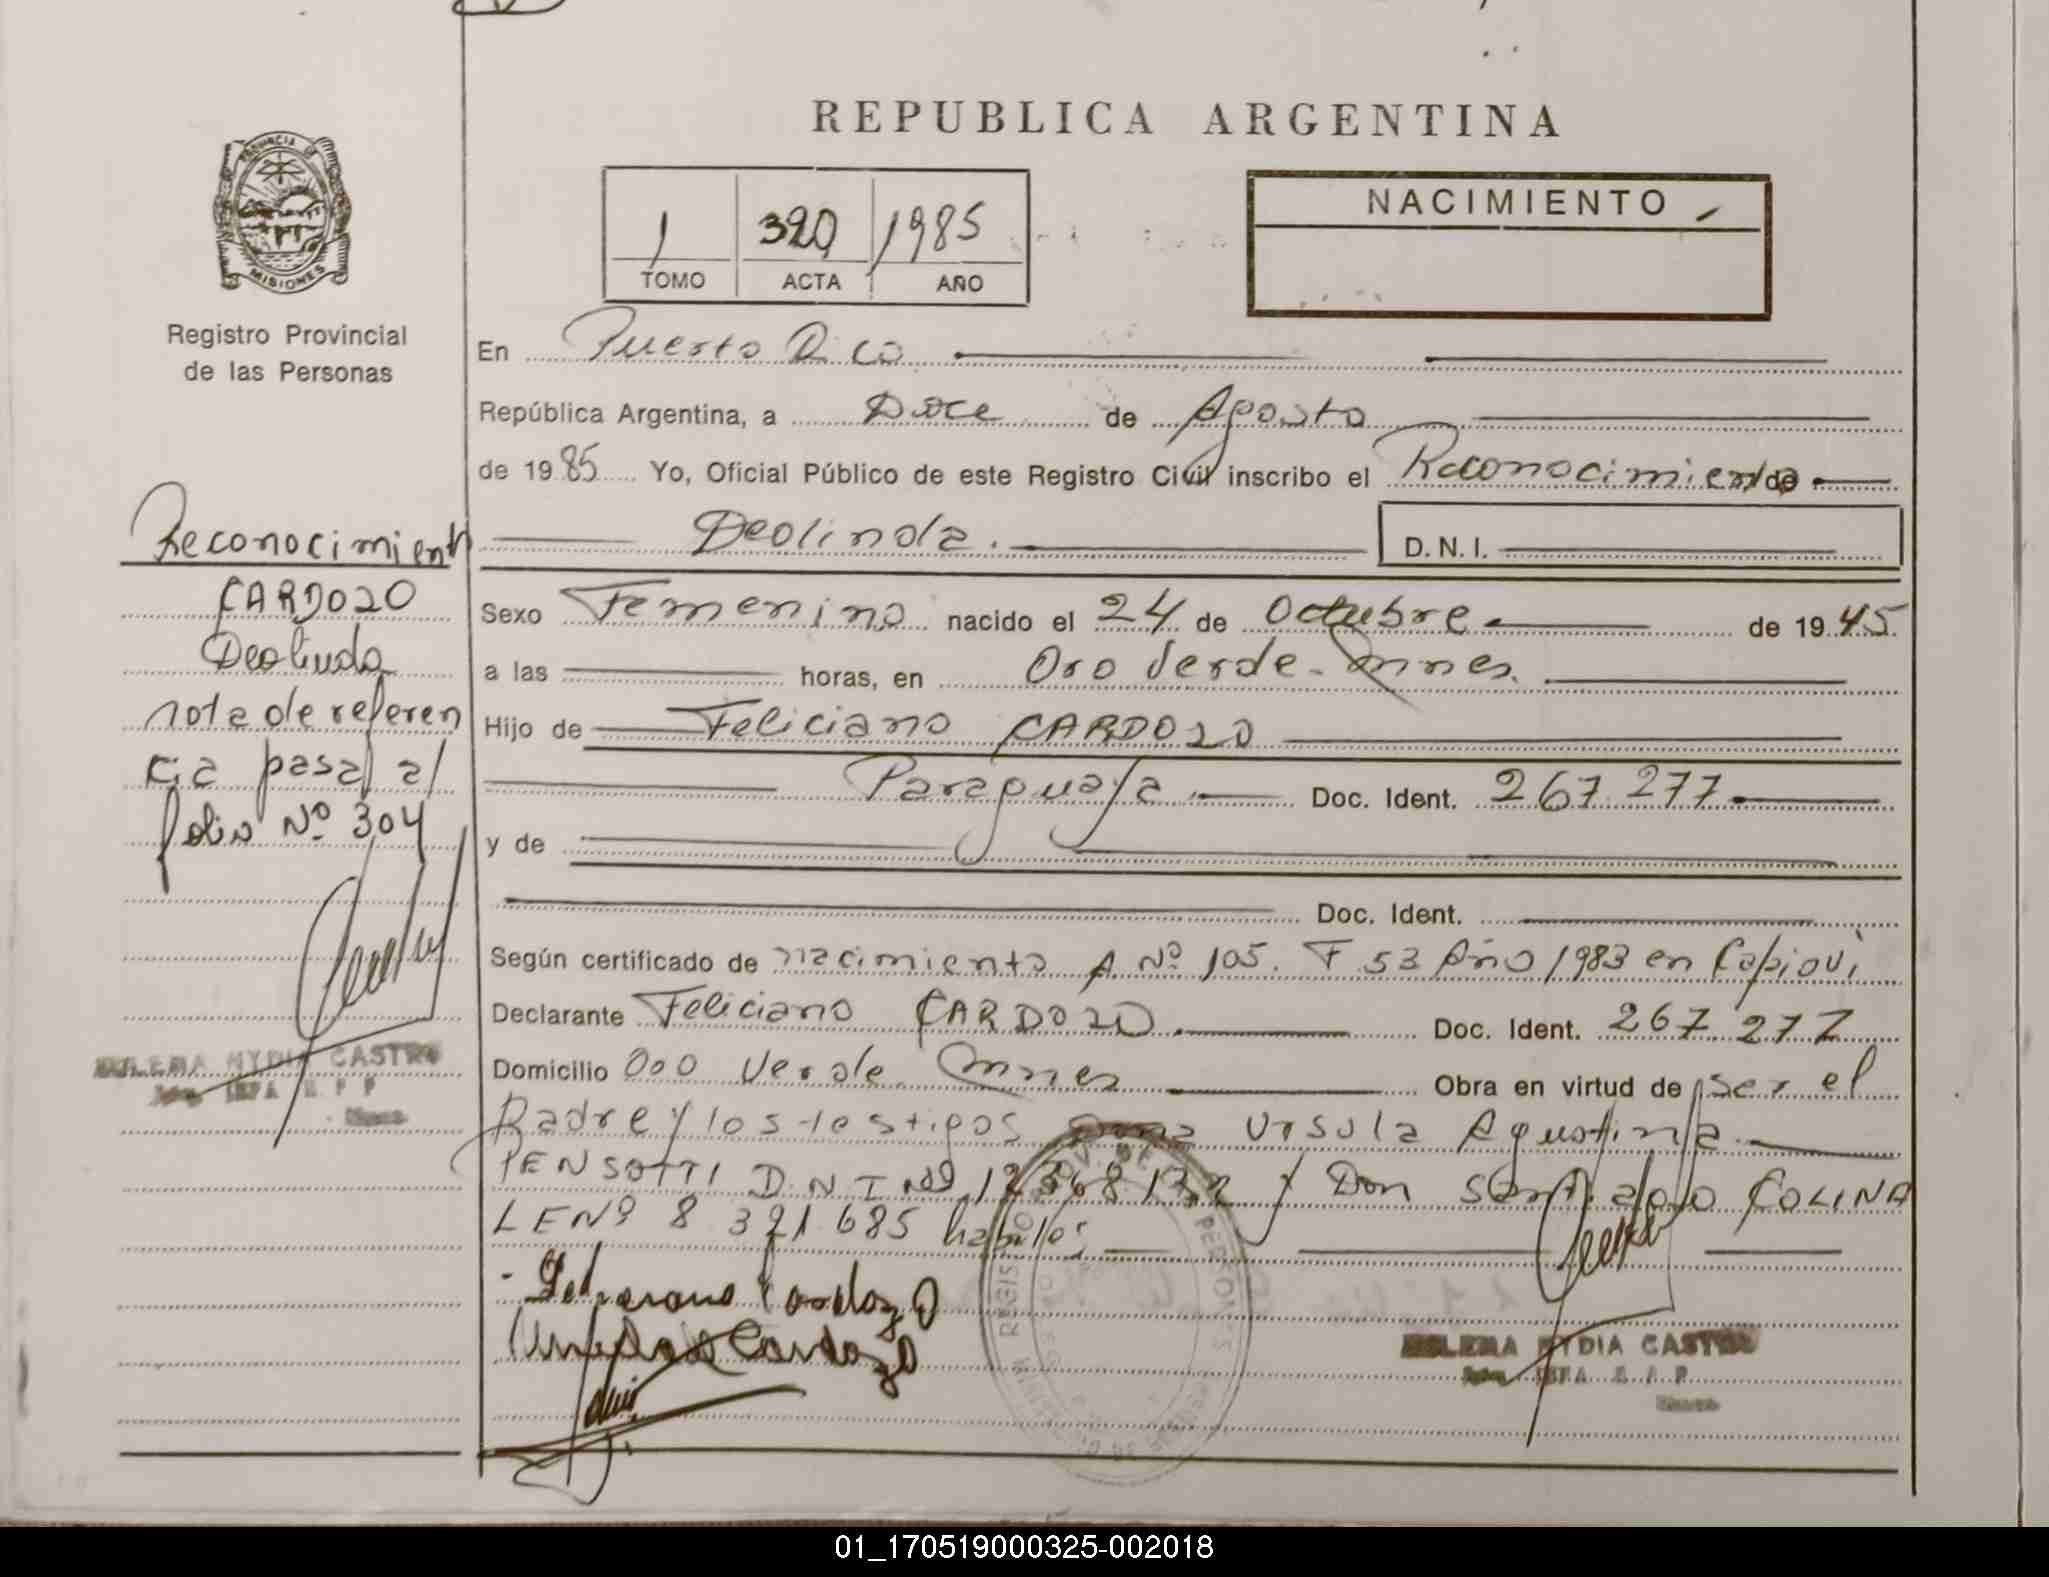 REPUBLICA ARGENTINA
PROVINCIA DE MISIONES
1 320 1985
TOMO ACTA AÑO
NACIMIENTO
Registro Provincial
de las Personas
En Puerto Rico
República Argentina, a Doce de Agosto
de 1985 Yo, Oficial Público de este Registro Civil inscribo el Reconocimiento de
Deolinda. D.N.I.
Sexo Femenino nacido el 24 de Octubre de 1945
a las horas, en Oro Verde - Mnes.
Hijo de Feliciano CARDOZO
Paraguaya Doc. Ident. 267.277
y de
Doc. Ident.
Según certificado de nacimiento A Nº 105. F 53 Año 1983 en Capioví
Declarante Feliciano CARDOZO Doc. Ident. 267.277
Domicilio Oro Verde Mnes Obra en virtud de ser el
Padre y los testigos Doña Ursula Agustina
PENSOTTI D.N.I Nº y Don Santiago COLINA
LE Nº 8.321.685 habiles
Cardozo
Cardozo
Reconocimiento
CARDOZO
Deolinda
nota de referen
cia pasa al
folio Nº 304
MYDIA CASTRO
MYDIA CASTRO
01_170519000325-002018